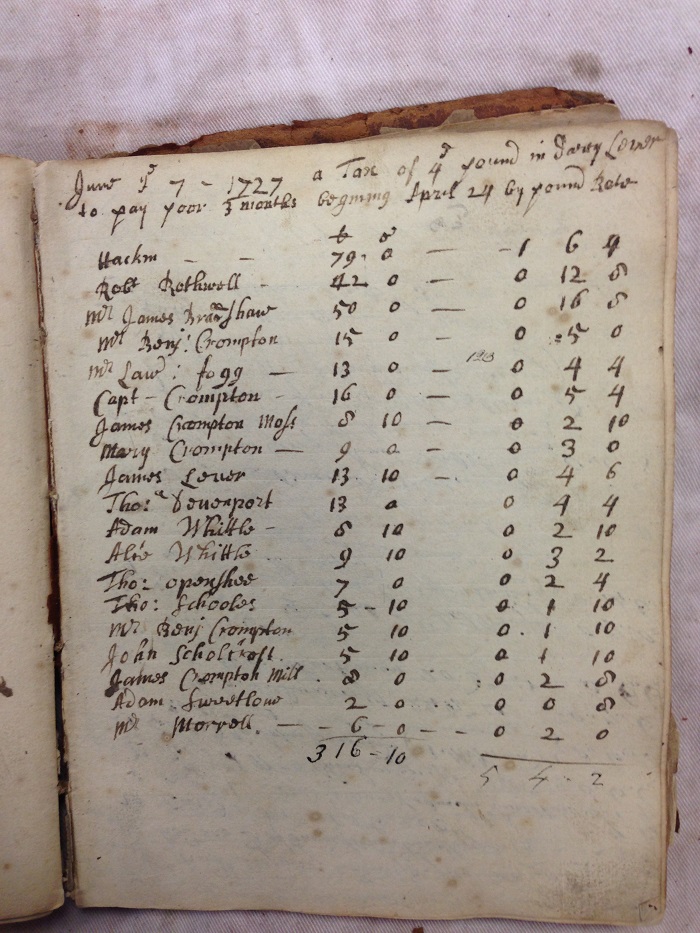 June ye 7 - 1727 a Tax of 4d pound in Darcy Lever
to pay poor 3 months begining April 24 by pound Rate
£ s
Hackin - - 79 - 0 - 1 6 4
Robt Rothwell - 42 0 - 0 12 8
Mr James Bradshaw 50 0 - 0 16 8
Mr Benj: Crompton 15 0 0 5 0
Mr Law: fogg - 13 0 - 0 4 4
Capt - Crompton - 16 0 - 0 5 4
James Crompton Moss 8 10 - 0 2 10
Mary Crompton - 9 0 - 0 3 0
James Lever 13 10 - 0 4 6
Tho: Devenport 13 0 0 4 4
Adam Whittle - 8 10 0 2 10
Alie Whittle 9 10 0 3 2
Tho: openshee 7 0 0 2 4
Tho: Schooles 5 - 10 0 1 10
Mr Benj Crompton 5 10 0 1 10
John Scholcroft 5 10 0 1 10
James Crompton Mill 8 0 0 2 8
Adam Sweetlove 2 0 0 0 8
Mr Morrell - - 6 - 0 - - 0 2 0
316 - 10
5 4 - 2